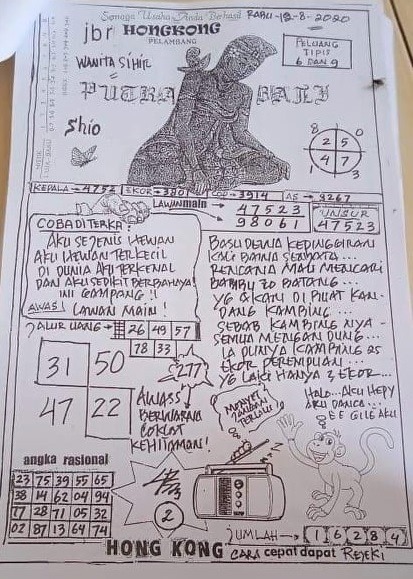 Semoga Usaha Anda Berhasil RABU-12-8-2020
jbr HONGKONG
PELAMBANG
PELUANG
TIPIS
6 DAN 9
WANITA SIHIR
PUTRA BALI
Shio
8 0
2 5
4 7
1 3
KEPALA → 4752 EKOR → 3801 COP → 3914 AS → 9267
LAWAN main → 47523
98061
UNSUR
47523
COBA DITERKA?
AKU SEJENIS HEWAN
AKU HEWAN TERKECIL
DI DUNIA AKU TERKENAL
DAN AKU SEDIKIT BERBAHAYA!
INI GAMPANG!!
AWAS! LAWAN MAIN!
BAMBU 20 BATANG...
YG AKAN DI BUAT KAN-
DANG KAMBING...
SEBAB KAMBING NYA-
SEMUA MENGANDUNG...
IA PUNYA KAMBING 25
EKOR PEREMPUAN...
YG LAKI HANYA 2 EKOR...
JALUR UANG → 26 49 57
78 33
31 50
47 22
277
AWASS
BERWARNA
COKLAT
KEHITAMAN!
MONYET
JANGAN
TERLALU
HALO...AKU HEPY
EE GILE AKU
angka rasional
23 75 39 55 65
38 14 62 04 94
77 28 71 05 32
02 87 13 64 74
2
JUMLAH → 1 6 2 8 4
HONG KONG CARA cepat dapat REJEKI